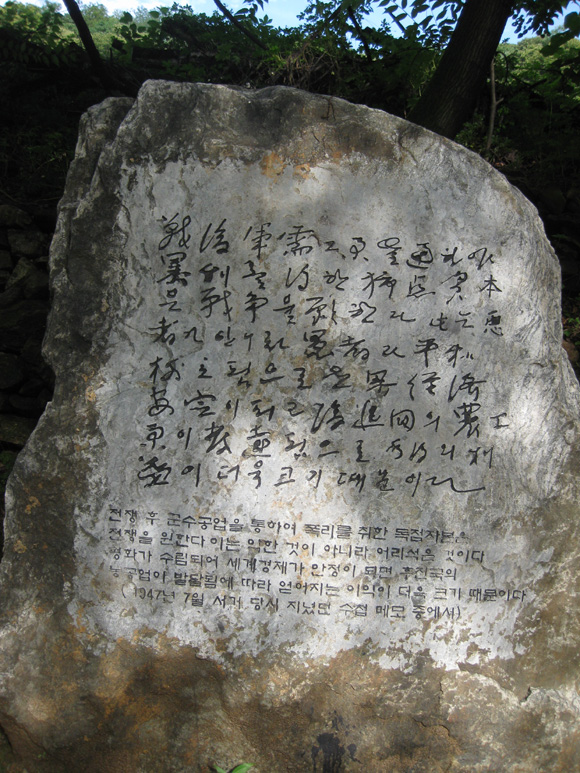 戰後 軍需工業 通
暴利 한 資本
은 戰爭을 願한다 惡
者가 안이라 愚者라 平和
立됨으로 世界 經濟
安定이 되고 後進国의 農工
業이 發達됨으로 利
益이 더욱 크기 때문이라
전쟁 후 군수공업을 통하여 폭리를 취한 독점자본은
전쟁을 원한다 이는 악한 것이 아니라 어리석을 것이다
평화가 수립되어 세계경제가 안정이 되면 후진국의
농공업이 발달됨에 따라 얻어지는 이익이 더욱 크기 때문이다
(1947년 7월 서거 당시 지녔던 수첩 메모 중에서)